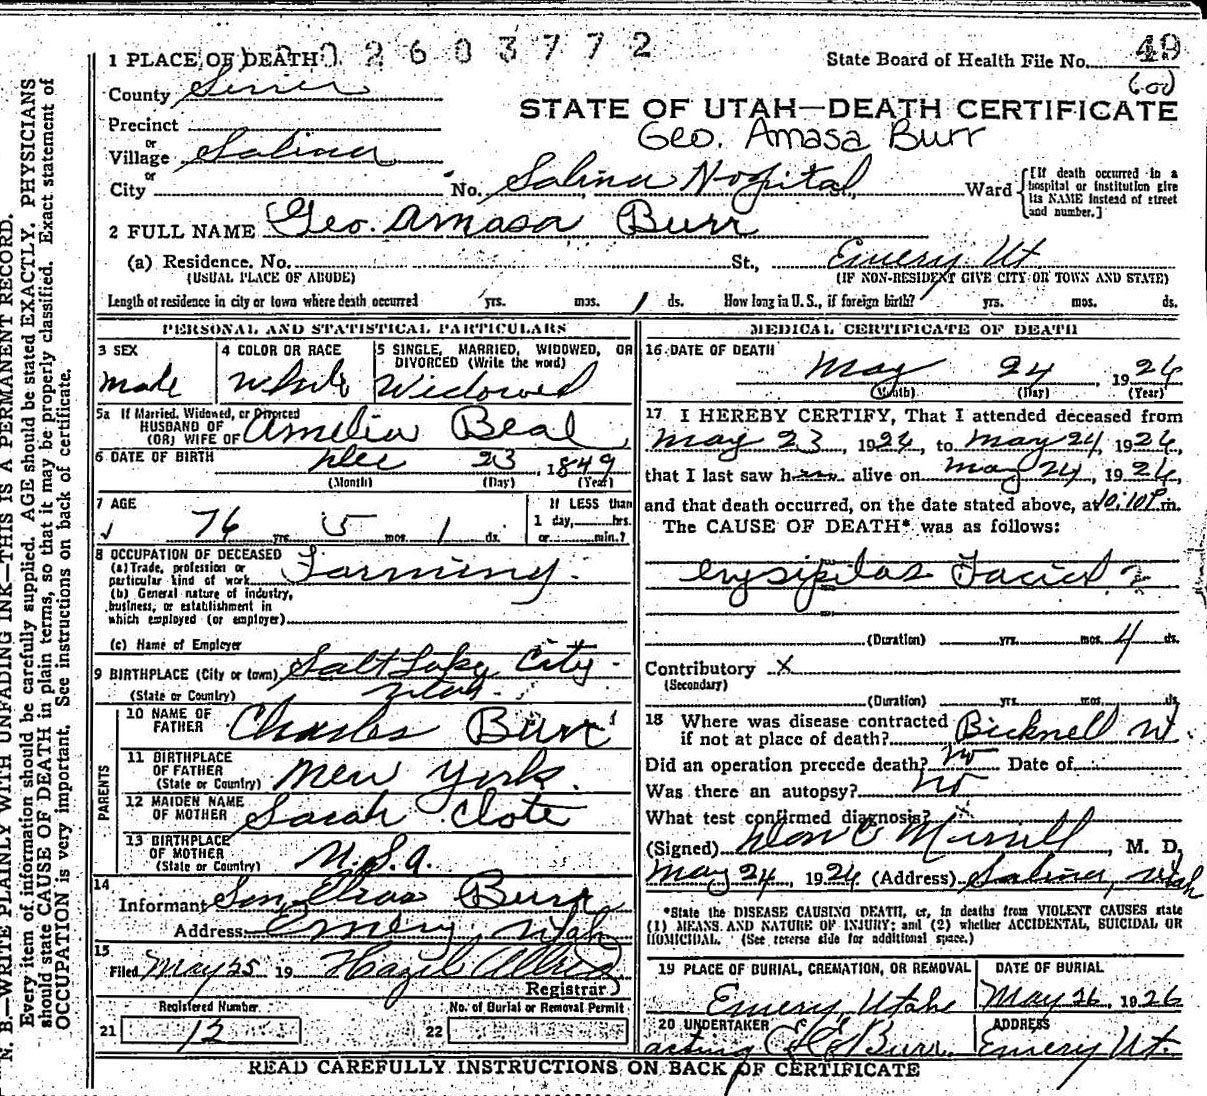 1 PLACE OF DEATH 2603772 49
State Board of Health File No.
County Sevier 600
STATE OF UTAH—DEATH CERTIFICATE
Precinct
Geo. Amasa Burr
or
Village Salina
or
City No. Salina Hospital St., Ward [If death occurred in a hospital or institution give its NAME instead of street and number.]
2 FULL NAME Geo. Amasa Burr
(a) Residence, No. St., Emery Ut
(USUAL PLACE OF ABODE) (IF NON-RESIDENT GIVE CITY OR TOWN AND STATE)
Length of residence in city or town where death occurred yrs. mos. 1 ds. How long in U. S., if foreign birth? yrs. mos. ds.
PERSONAL AND STATISTICAL PARTICULARS
3 SEX
male
4 COLOR OR RACE
White
5 SINGLE, MARRIED, WIDOWED, OR
DIVORCED (Write the word)
Widowed
5a If Married, Widowed, or Divorced
HUSBAND OF
(OR) WIFE OF Amelia Beal
6 DATE OF BIRTH Dec 23, 1849
(Month) (Day) (Year)
7 AGE
76 yrs. 5 mos. 1 ds.
If LESS than
1 day, hrs.
or min.?
8 OCCUPATION OF DECEASED
(a) Trade, profession or
particular kind of work Farming
(b) General nature of industry,
business, or establishment in
which employed (or employer)
(c) Name of Employer
9 BIRTHPLACE (City or town) Salt Lake City
(State or Country) Utah
PARENTS
10 NAME OF
FATHER Charles Burr
11 BIRTHPLACE
OF FATHER
(State or Country) New York
12 MAIDEN NAME
OF MOTHER Sarah Clote
13 BIRTHPLACE
OF MOTHER
(State or Country) U.S.A.
14
Informant Son Elias Burr
Address Emery, Utah
15
Filed May 25 19 Hazel
Registrar
Registered Number
21 12
No. of Burial or Removal Permit
22
MEDICAL CERTIFICATE OF DEATH
16 DATE OF DEATH
May 24, 1926
(Month) (Day) (Year)
17 I HEREBY CERTIFY, That I attended deceased from
May 23, 1926, to May 24, 1926,
that I last saw him alive on May 24, 1926,
and that death occurred, on the date stated above, at 10:10 P.m.
The CAUSE OF DEATH* was as follows:
erysipelas Facial
(Duration) yrs. mos. 4 ds.
Contributory X
(Secondary)
(Duration) yrs. mos. ds.
18 Where was disease contracted
if not at place of death? Bicknell Ut.
Did an operation precede death? No Date of
Was there an autopsy? No
What test confirmed diagnosis?
(Signed) Merrill, M. D.
May 24, 1926 (Address) Salina, Utah
*State the DISEASE CAUSING DEATH, or, in deaths from VIOLENT CAUSES state
(1) MEANS AND NATURE OF INJURY; and (2) whether ACCIDENTAL, SUICIDAL OR
HOMICIDAL. (See reverse side for additional space.)
19 PLACE OF BURIAL, CREMATION, OR REMOVAL
Emery, Utah
DATE OF BURIAL
May 26, 1926
20 UNDERTAKER
acting Burr
ADDRESS
Emery Ut.
READ CAREFULLY INSTRUCTIONS ON BACK OF CERTIFICATE
N. B.—WRITE PLAINLY WITH UNFADING INK—THIS IS A PERMANENT RECORD.
Every item of information should be carefully supplied. AGE should be stated EXACTLY. PHYSICIANS
should state CAUSE OF DEATH in plain terms, so that it may be properly classified. Exact statement of
OCCUPATION is very important. See instructions on back of certificate.